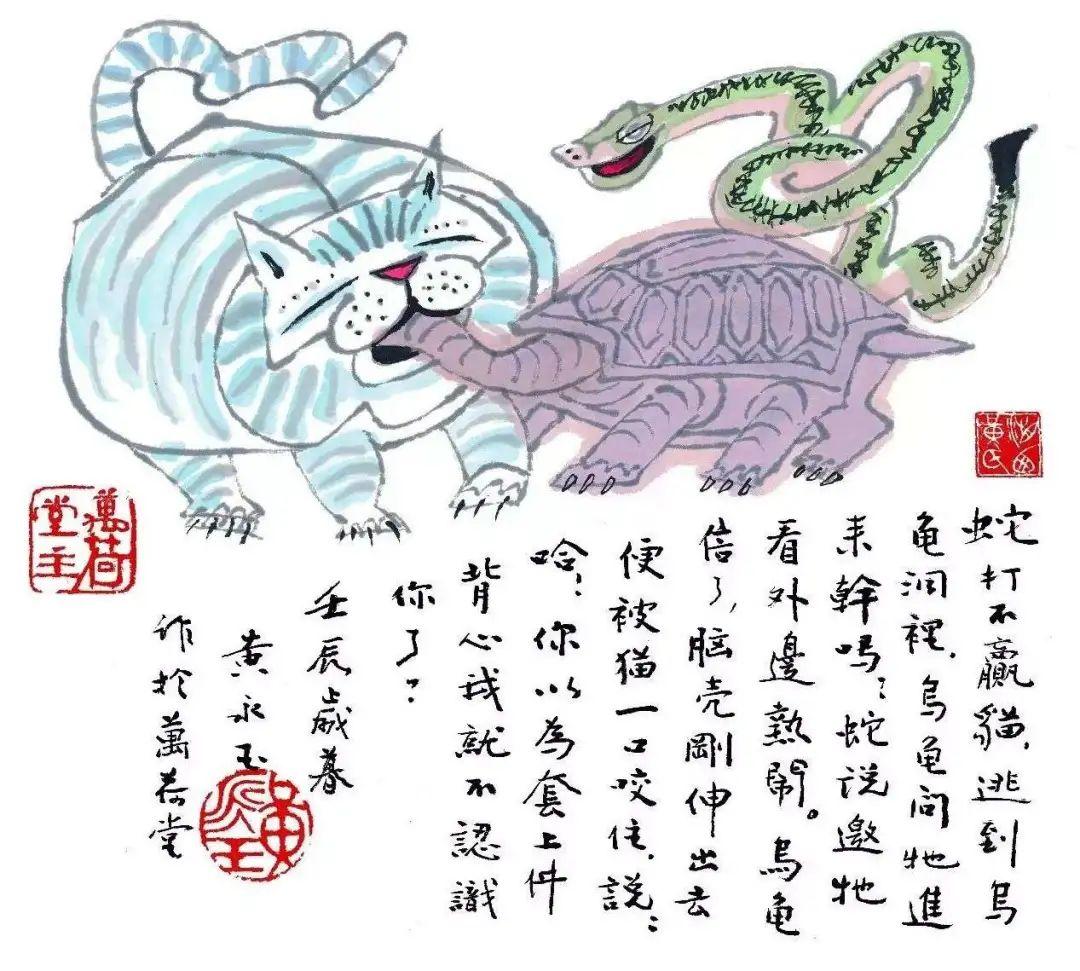 蛇打不贏貓，逃到烏
龜洞裡，烏龜问牠進
来幹嗎？蛇说邀牠
看外邊熱鬧。烏龜
信了，脑壳剛伸出去
便被猫一口咬住，説：
哈！你以為套上件
背心我就不認識
你了？
壬辰歲暮
黄永玉
作於萬荷堂
萬荷堂主
黄永玉
黃氏